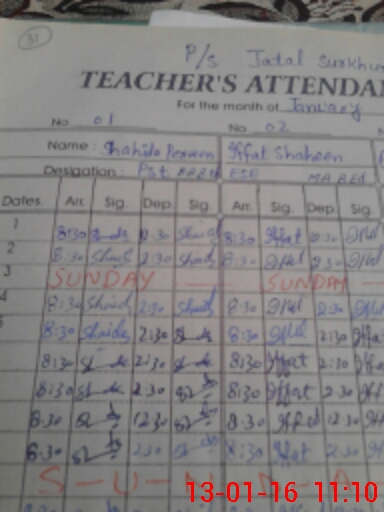 31
P/s Jatal Surkhru
TEACHER'S ATTENDAN
For the month of January
No. 01 No. 02
Name: Shahida Perveen Iffat Shaheen
Desigation: Pst ESE MA B.Ed
Dates. Arr. Sig. Dep. Sig. Arr. Sig. Dep. Sig.
1 8:30 2:30 Shaid 8:30 Iffat 2:30 Iffat
2 8:30 Shaid 2:30 Shaid 8:30 Iffat 2:30 Iffat
3 SUNDAY SUNDAY
4 8:30 Shaid 2:30 Shaid 8:30 Iffat 2:30 Iffat
5 8:30 Shaida 2:30 8:30 Iffat 2:30 Iffa
8:30 2:30 8:30 Iffat 2:30 Iff
8:30 2:30 8:30 Iffat 2:30 Iff
8:30 12:30 8:30 Iffat 12:30 Iff
8:30 2:30 8:30 Iffat 2:30 Iff
S-U-N-D-A
13-01-16 11:10